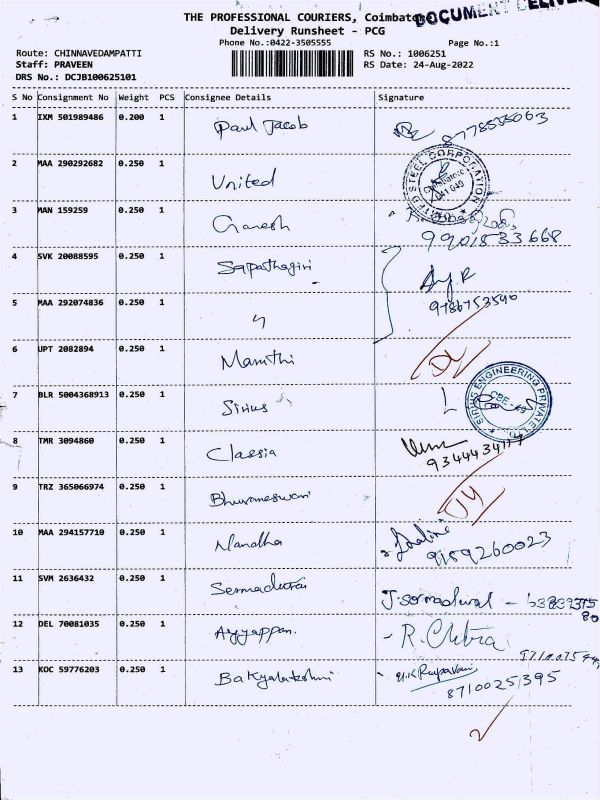 THE PROFESSIONAL COURIERS, Coimbatore
DOCUMENT
Delivery Runsheet - PCG
Phone No.:0422-3505555 Page No.:1
Route: CHINNAVEDAMPATTI RS No.: 1006251
Staff: PRAVEEN RS Date: 24-Aug-2022
DRS No.: DCJB100625101
S No Consignment No Weight PCS Consignee Details Signature
1 IXM 501989486 0.200 1 Paul Jacob
2 MAA 290292682 0.250 1 United
3 MAN 159259 0.250 1 Ganesh
9901533668
4 SVK 20088595 0.250 1 Sapathagiri
5 MAA 292074836 0.250 1 9786753540
6 JPT 2082894 0.250 1 Maruthi
7 BLR 5004368913 0.250 1 Sirius
SIRIUS ENGINEERING PRIVATE LTD
8 TMR 3094860 0.250 1 Classia
9 TRZ 365066974 0.250 1 Bhuvaneswari
10 MAA 294157710 0.250 1 Nandha
9159260023
11 SVM 2636432 0.250 1
12 DEL 70081035 0.250 1 Ayyappan. R. Chitra
13 KOC 59776203 0.250 1 Bakyalakshmi
8710025395